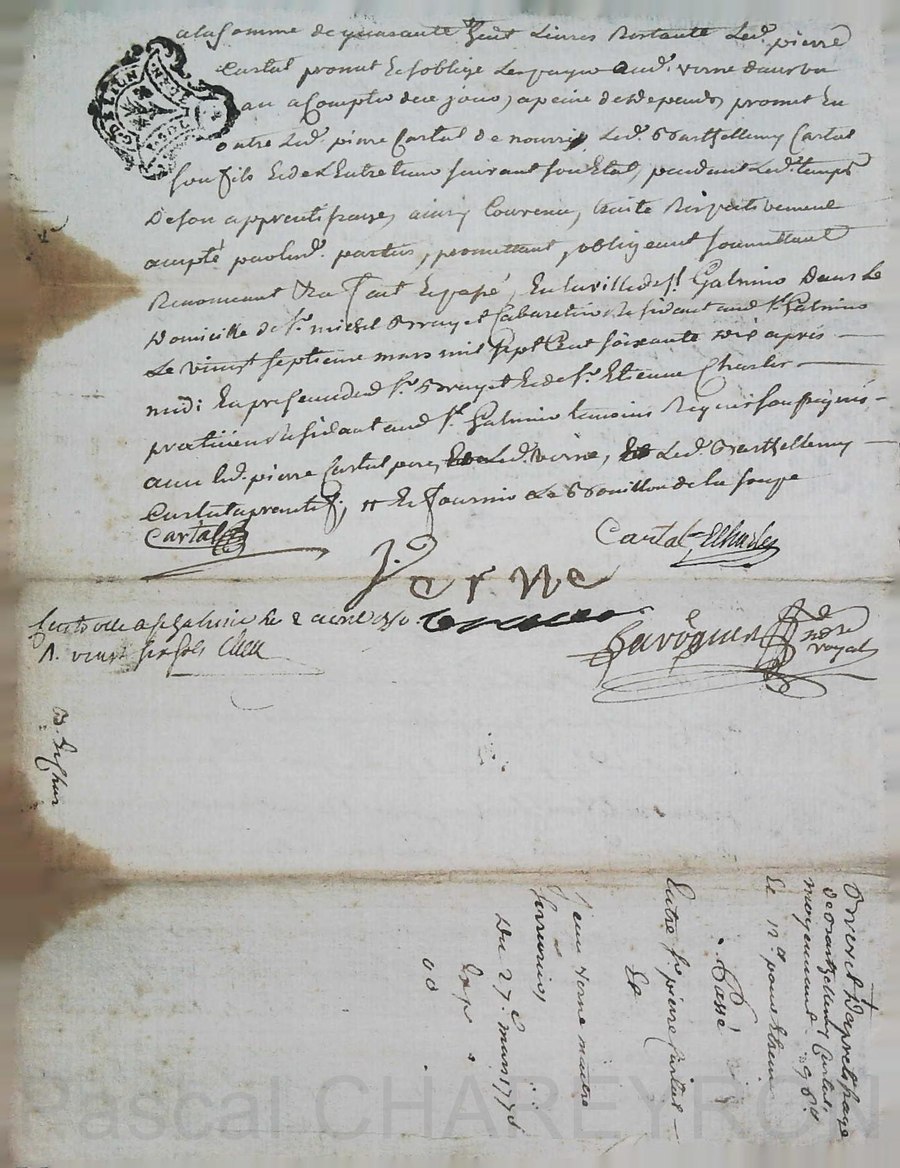 a la somme de quarante huit Livres Restante Led. pierre
Cartal promet Et soblige de payer aud. verne dans un
an a Compter de ce jour, a peine de depends, promet En
outre Led. pierre Cartal de nourrir Led. Barthellemy Cartal
son fils Et de L'Entretenir suivant son Etat, pendant Led. temps
De son apprentissage, ainsy Convenu, Respectivement
accepté par lesd. parties, promettant, obligeant soumettant
Renonceant fait Et passé, En la ville de st Galmier Dans Le
Domicille de sr. michel Cabaretier Residant aud. st. Galmier
Le vingt septieme mars mil sept Cent soixante dix apres
midi En presence dud. sr. Et de sr. Etienne Charles
praticien Residant aud. st. Galmier temoins Requis soussignés
avec led. pierre Cartal pere, Led. verne, Led. Barthellemy
Cartal aprentif, Et fournir Le Bouillon de la soupe
Cartal
Cartal ECharles
J. verne
a st Galmier le 2 avril 1770
R. vingt six sols
Gavoguen
nore
royal
Brevet d'aprentissage
de Barthellemy Cartal
moyennant 96 ll
Et 12 ll pour
Passé
Entre sr. pierre Cartal
Et
jean verne maitre
serrurier
Du 27. mars 1770
Exp.
Pascal CHAREYRON